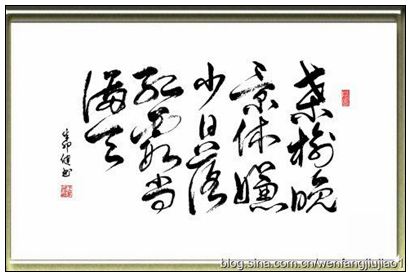 桑榆晚
景休嫌
少日落
红霞尚
满天
辛卯健书
blog.sina.com.cn/wenfangjiujiao1